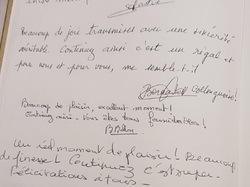 Beaucoup de joie transmises avec une sincérité
véritable. Continuez ainsi c'est un régal et
pour nous et pour vous, me semble-t-il !
Beaucoup de plaisir, excellent moment !
Continuez ainsi. Vous êtes tous formidables !
Un réel moment de plaisir ! Beaucoup
de finesse ! Continuez c'est super.
Félicitations à tous.